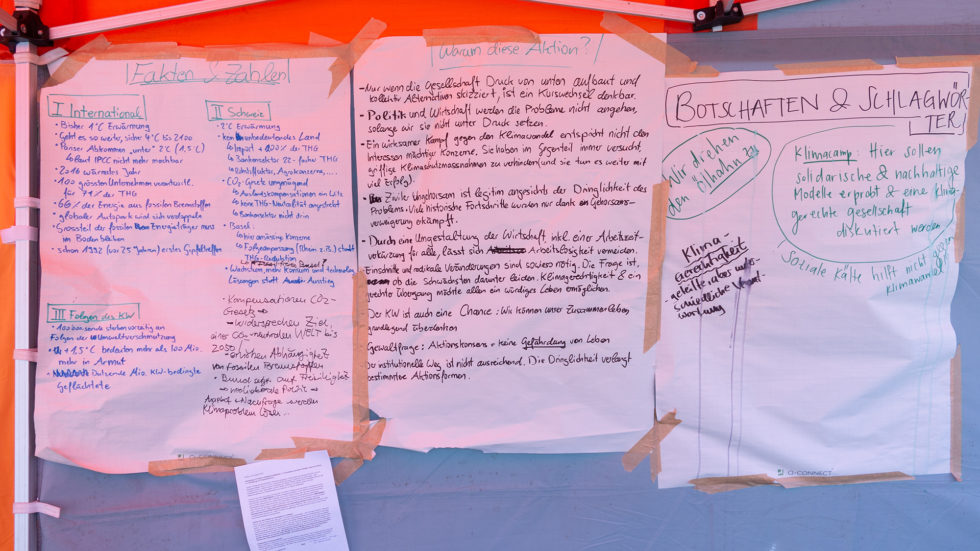 Fakten & Zahlen
I International
• Bisher 1°C Erwärmung
• Geht es so weiter, sicher 4°C bis 2100
• Pariser Abkommen "unter" 2°C (1,5°C)
↳ laut IPCC nicht mehr machbar
• 2016 wärmstes Jahr
• 100 grössten Unternehmen verantwortl.
für 71% der THG
• 66% der Energie aus fossilen Brennstoffen
• globaler Autopark wird sich verdoppeln
• Grossteil der fossilen Energieträger muss
im Boden bleiben
• schon 1992 (vor 25 Jahren) erstes Gipfeltreffen
III Folgen des KW
• 100 tausende sterben vorzeitig an
Folgen der Umweltverschmutzung
+ 1,5°C bedeuten mehr als 100 Mio.
mehr in Armut
Dutzende Mio. KW-bedingte
Geflüchtete
II Schweiz
• 2°C Erwärmung
• kein unbedeutendes Land
↳ Import + 100% der THG
↳ Bankensektor 22-fache THG
↳ Rohstoffkultur, Agrokonzerne, ....
• CO2-Gesetz ungenügend
↳ Auslandskompensationen ein Witz
↳ keine THG-Neutralität angestrebt
↳ Bankensektor nicht drin
• Basel:
↳ hier ansässige Konzerne
↳ Folgeanpassung (Rhein z.B.) statt
THG-Reduktion
• Wachstum, mehr Konsum und technolog.
Lösungen statt Ausstieg
- Kompensationen CO2-
Gesetz →
- widersprechen Ziel,
einer CO2-neutralen WELT bis
2050!
- erhöhen Abhängigkeit
von fossilen Brennstoffen
• Beruht alles auf Freiwilligkeit
→ neoliberale Politik →
Angebot + Nachfrage werden
Klimaproblem lösen...
Warum diese Aktion?
- Nur wenn die Gesellschaft Druck von unten aufbaut und
kollektiv Alternativen skizziert, ist ein Kurswechsel denkbar.
- Politik und Wirtschaft werden die Probleme nicht angehen,
solange wir sie nicht unter Druck setzen.
- Ein wirksamer Kampf gegen den Klimawandel entspricht nicht den
Interessen mächtiger Konzerne. Sie haben im Gegenteil immer versucht,
griffige Klimaschutzmassnahmen zu verhindern (und sie tun es weiter mit
viel Erfolg).
- Ziviler Ungehorsam ist legitim angesichts der Dringlichkeit des
Problems. Viele historische Fortschritte wurden nur dank Gehorsams-
verweigerung erkämpft.
- Durch eine Umgestaltung der Wirtschaft inkl. einer Arbeitszeit-
verkürzung für alle, lässt sich Arbeitslosigkeit vermeiden.
Einschnitte und radikale Veränderungen sind sowieso nötig. Die Frage ist,
ob die Schwächsten darunter leiden. Klimagerechtigkeit & ein
gerechter Übergang möchte allen ein würdiges Leben ermöglichen.
- Der KW ist auch eine Chance: Wir können unser Zusammenleben
grundlegend überdenken
- Gewaltfrage: Aktionskonsens = keine Gefährdung von Leben
- Der institutionelle Weg ist nicht ausreichend. Die Dringlichkeit verlangt
bestimmte Aktionsformen.
BOTSCHAFTEN & SCHLAGWÖR
TER
Wir drehen
den Ölhahn zu
Klimacamp: Hier sollen
solidarische & nachhaltige
Modelle erprobt & eine klima-
gerechte gesellschaft
diskutiert werden
Soziale Kälte hilft nicht gegen
Klimawandel
- Klima-
gerechtigkeit
- geteilte aber unter-
schiedliche Verant-
wortung
O-CONNECT
O-CONNECT